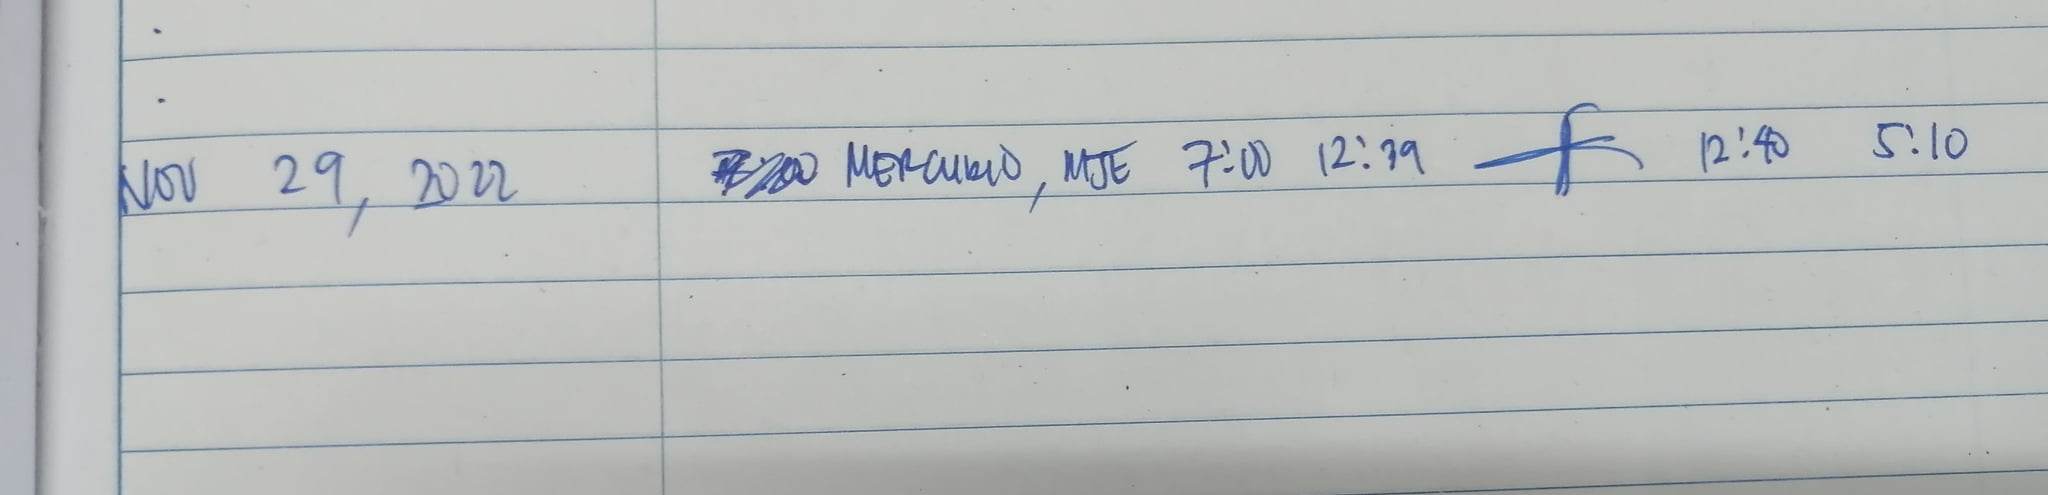 NOV 29, 2022 MERCURIO, MJE 7:00 12:39 12:40 5:10